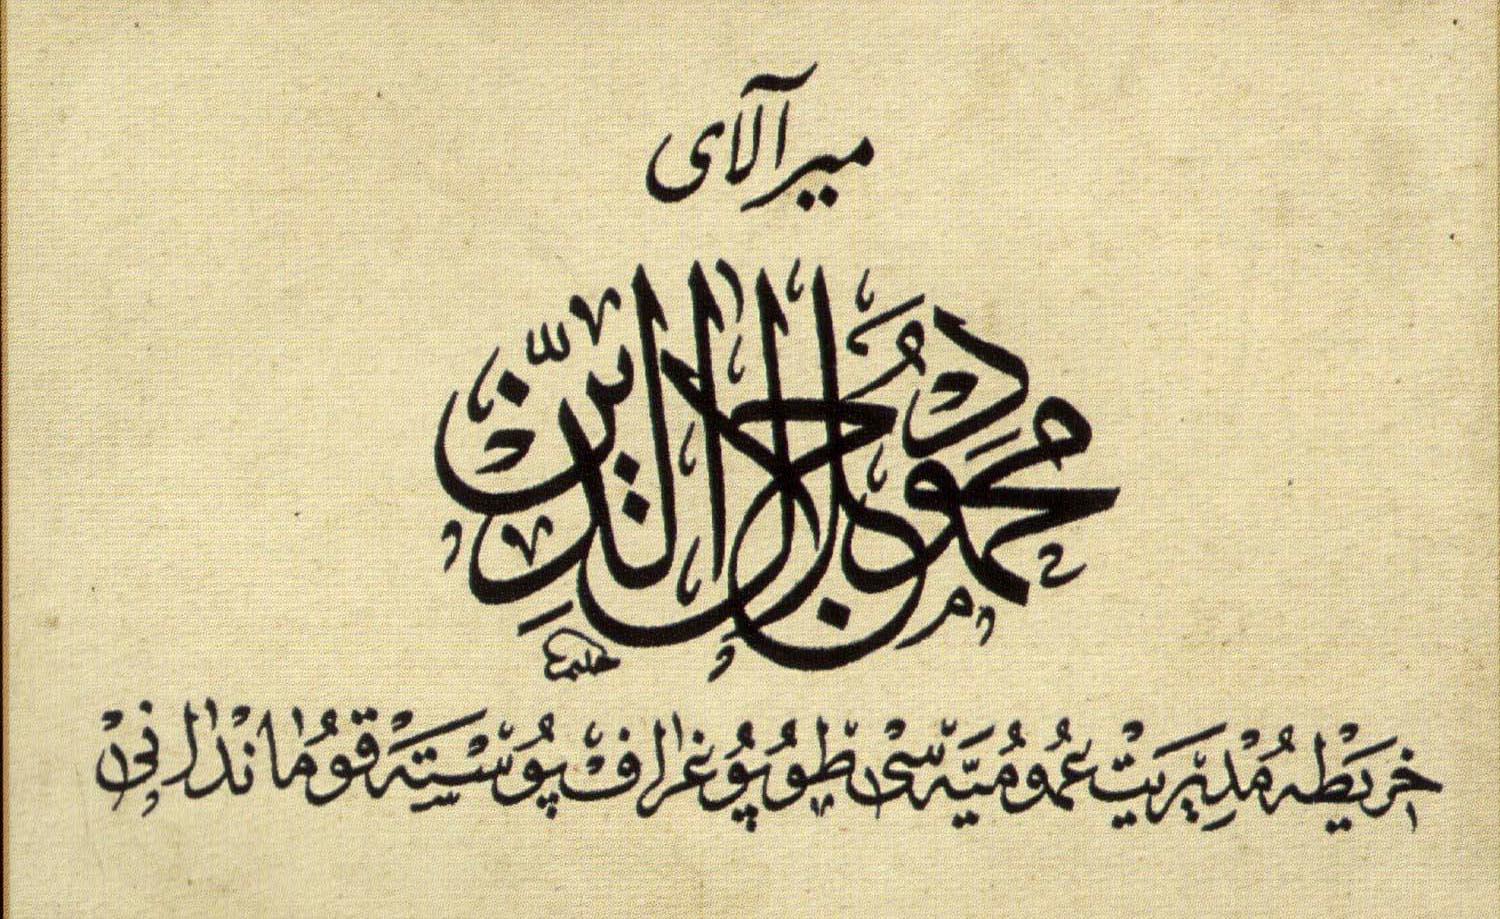 میرآلای
محمود جلال الدین
خریطه مدیریت عمومیه سی طوپوغراف پوسته قوماندانی